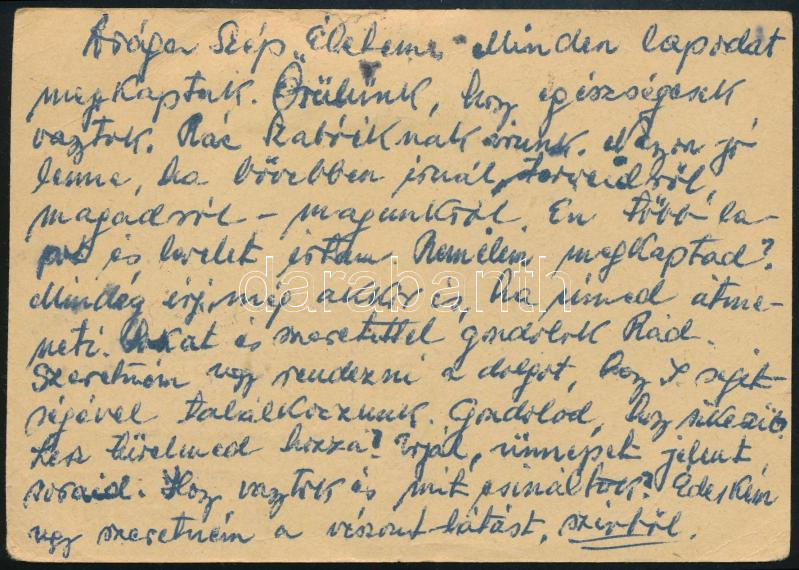 Drága Szép Életem. Minden lapodat
megkaptuk. Örülünk, hogy egészségesek
vagytok. Rác Szabóéknak írunk. Nagyon jó
lenne, ha bővebben írnál, terveidről,
magadról – magunkról. Én több la-
pot és levelet írtam. Remélem megkaptad?
Mindég írj, még akkor is, ha címed átme-
neti. Sokat és szeretettel gondolok Rád.
Szeretném úgy rendezni a dolgot, hogy X segít-
ségével találkozzunk. Gondolod, hogy sikerül?
Lesz türelmed hozzá? Írjál, ünnepet jelent
soraid. Hogy vagytok és mit csináltok? Édeském
úgy szeretném a viszontlátást, szívből.
darabanth